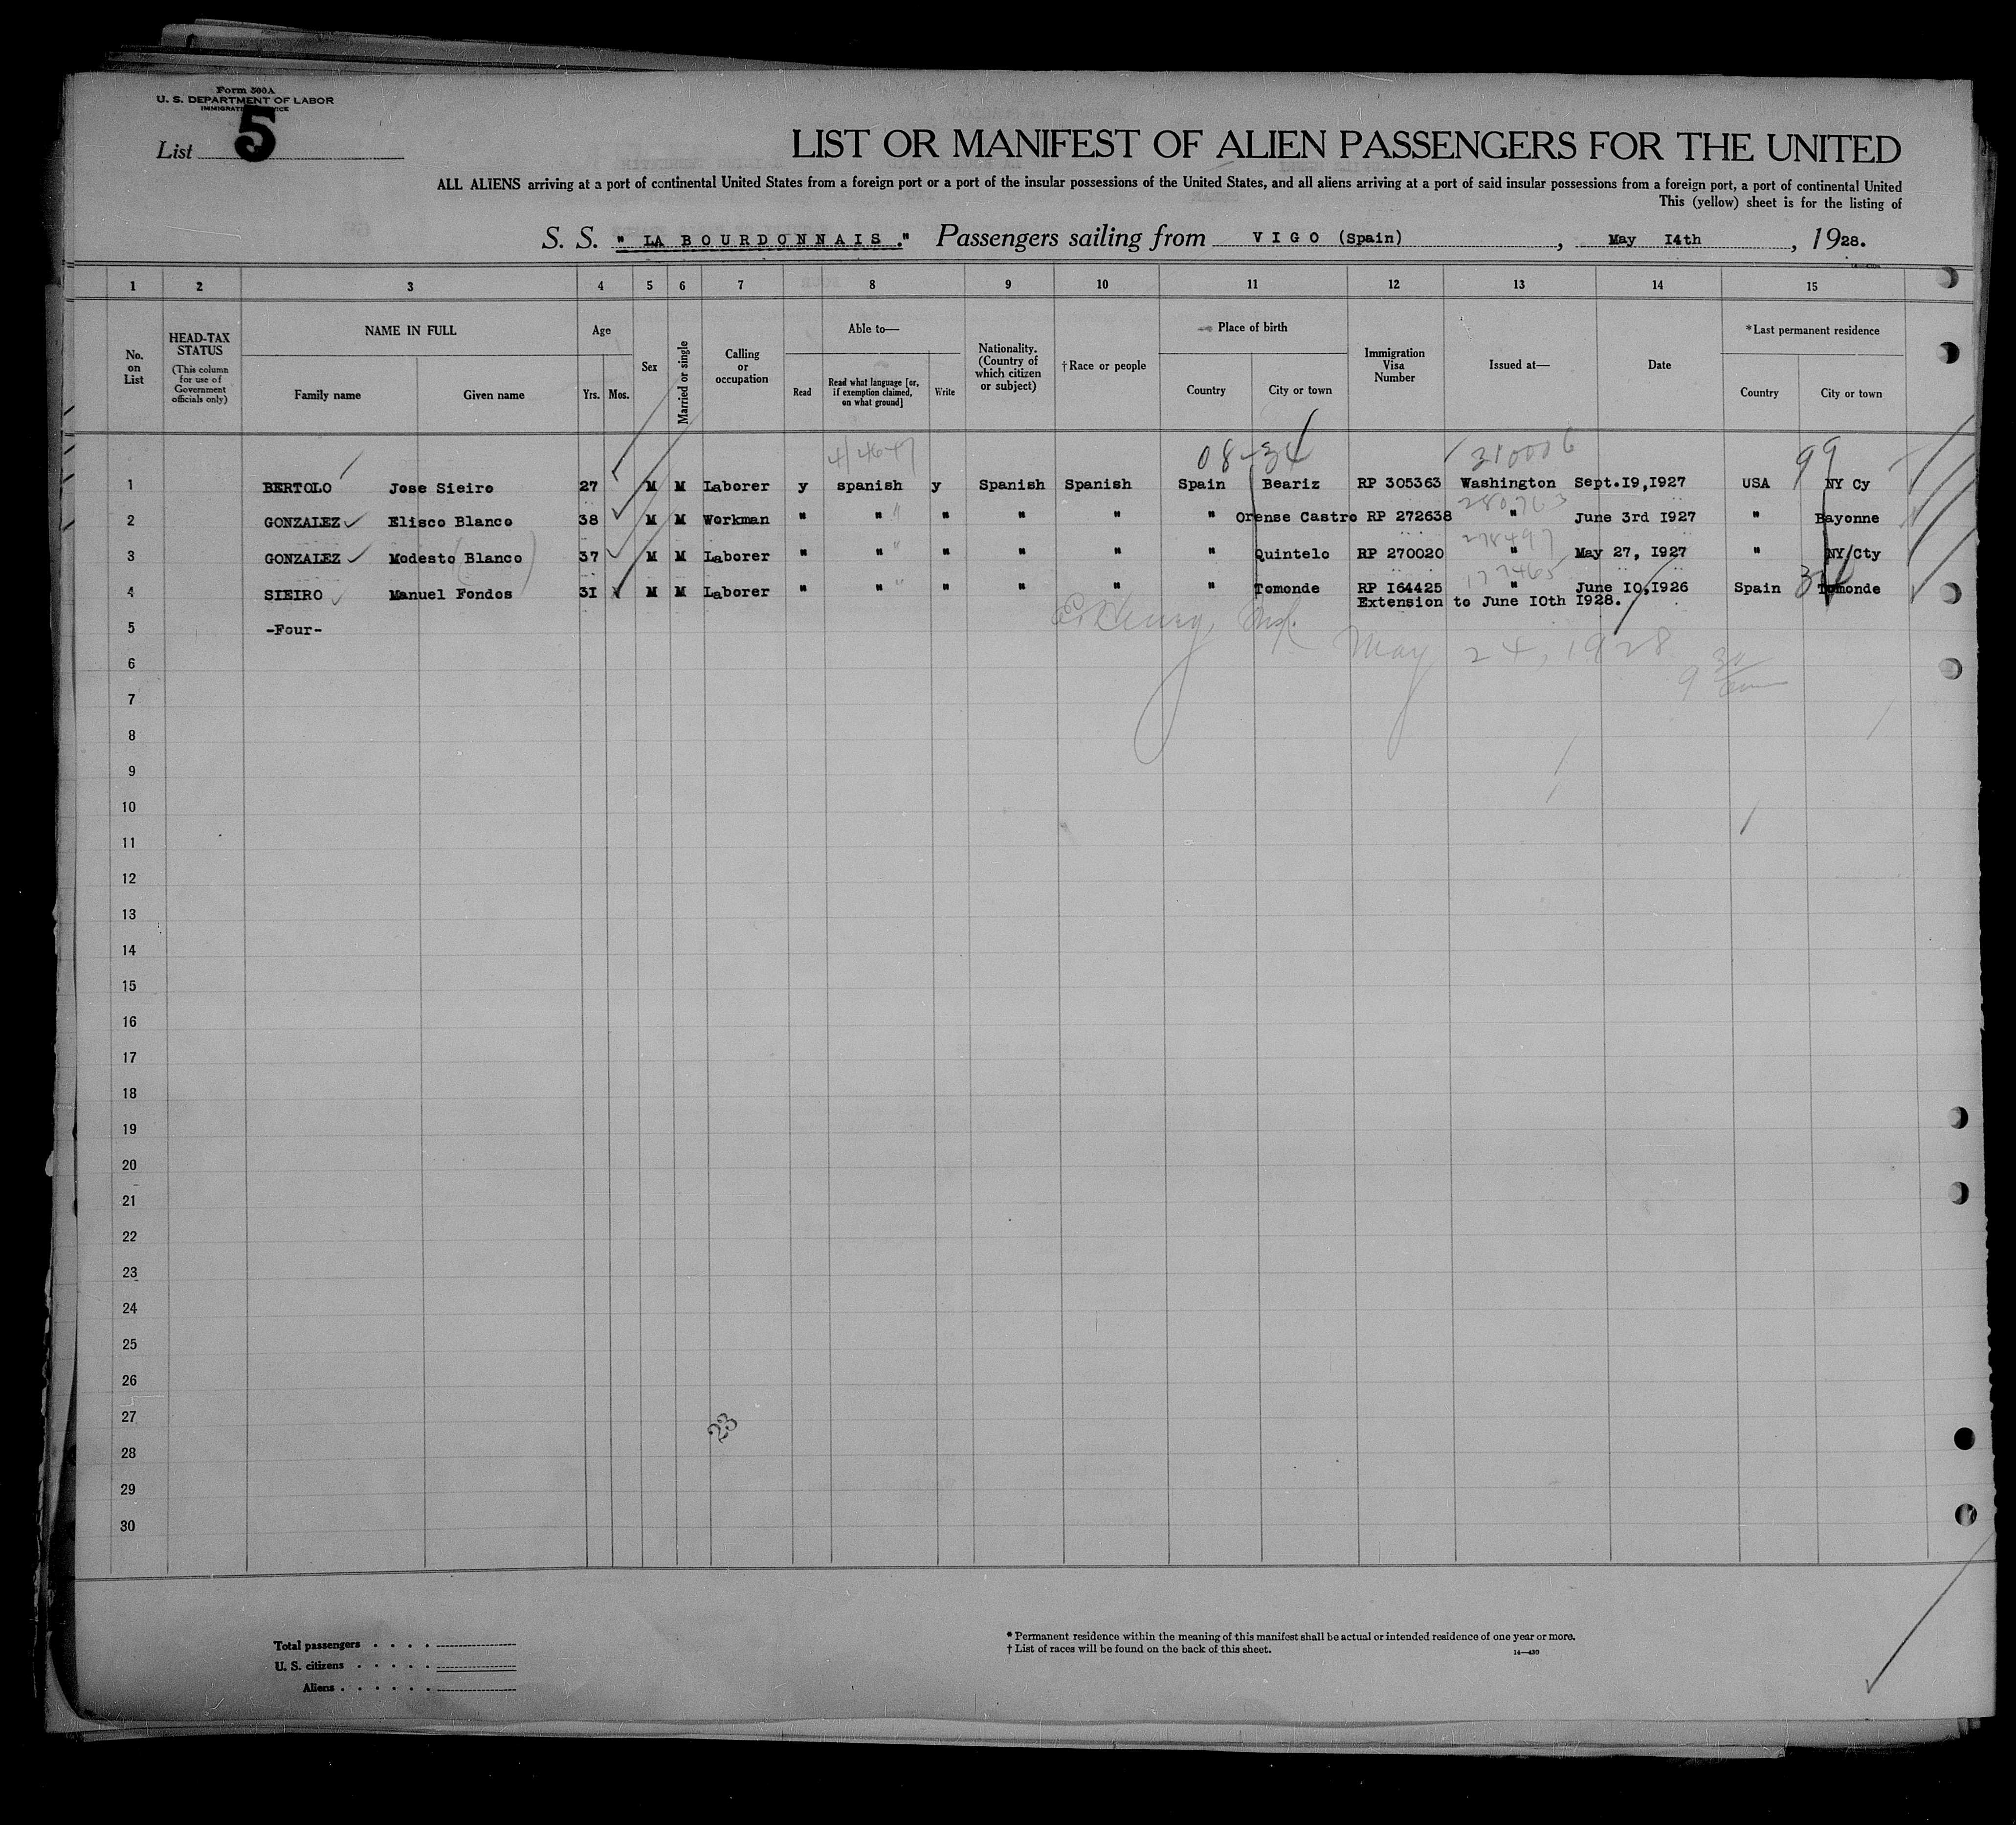 Form 500A
U. S. DEPARTMENT OF LABOR
IMMIGRATION SERVICE
List 5
LIST OR MANIFEST OF ALIEN PASSENGERS FOR THE UNITED
ALL ALIENS arriving at a port of continental United States from a foreign port or a port of the insular possessions of the United States, and all aliens arriving at a port of said insular possessions from a foreign port, a port of continental United
This (yellow) sheet is for the listing of
S. S. " LA BOURDONNAIS ." Passengers sailing from VIGO (Spain), May I4th, 1928.
1 2 3 4 5 6 7 8 9 10 11 12 13 14 15
No. on List
HEAD-TAX STATUS (This column for use of Government officials only)
NAME IN FULL
Family name Given name
Age
Yrs. Mos.
Sex
Married or single
Calling or occupation
Able to—
Read
Read what language [or, if exemption claimed, on what ground]
Write
Nationality. (Country of which citizen or subject)
†Race or people
Place of birth
Country City or town
Immigration Visa Number
Issued at—
Date
*Last permanent residence
Country City or town
08-34 310006 99
1 BERTOLO Jose Sieiro 27 M M Laborer y spanish y Spanish Spanish Spain Beariz RP 305363 Washington Sept.I9,I927 USA NY Cy
280763
2 GONZALEZ Elisco Blanco 38 M M Workman " " " " " " Orense Castro RP 272638 " June 3rd I927 " Bayonne
278497
3 GONZALEZ Modesto Blanco 37 M M Laborer " " " " " " Quintelo RP 270020 " May 27, I927 " NY/Cty
177465
4 SIEIRO Manuel Fondos 3I M M Laborer " " " " " " Tomonde RP I64425 " June I0,I926 Spain Tomonde
Extension to June I0th I928.
5 -Four-
May 24, 1928
9 30
6
7
8
9
10
11
12
13
14
15
16
17
18
19
20
21
22
23
24
25
26
27
23
28
29
30
Total passengers . . . .
U. S. citizens . . . . .
Aliens . . . . . .
* Permanent residence within the meaning of this manifest shall be actual or intended residence of one year or more.
† List of races will be found on the back of this sheet.
14—430